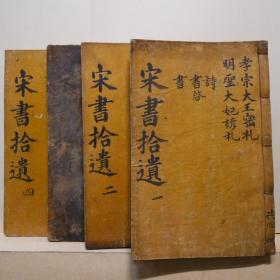 孝宗大王密札
明聖大妃諺札
詩
書啓
書
宋書拾遺 一
宋書拾遺 二
宋書拾遺 四